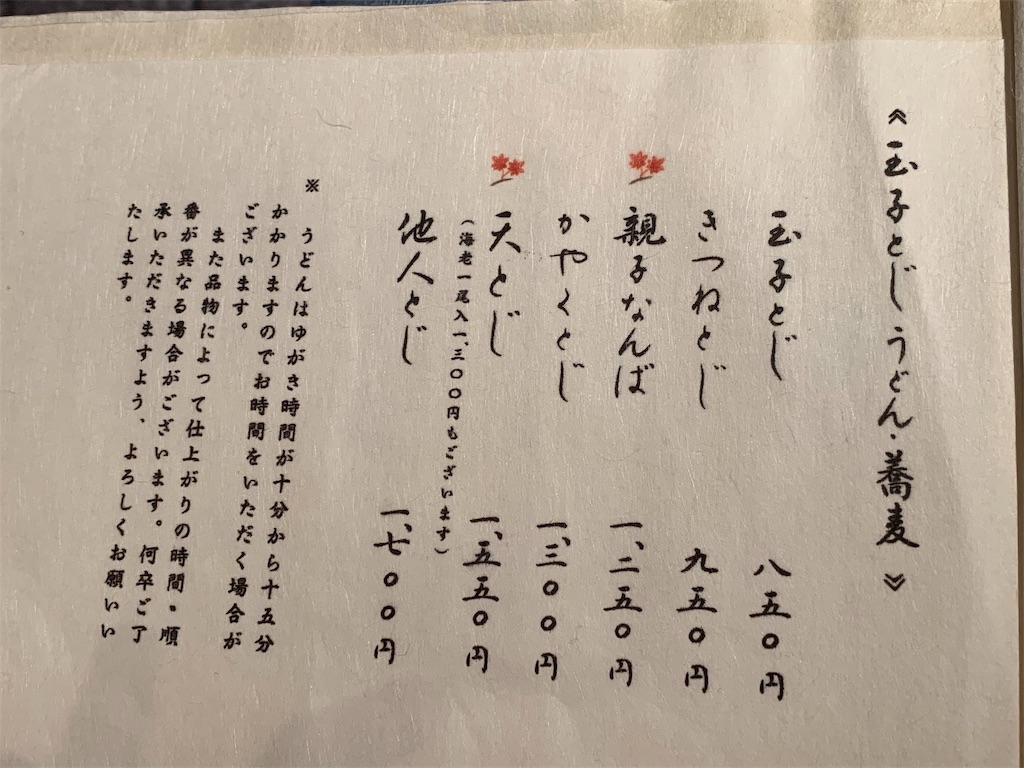 《玉子とじうどん・蕎麦》
玉子とじ 八五〇円
きつねとじ 九五〇円
親子なんば 一、二五〇円
かやくとじ 一、三〇〇円
天とじ 一、五五〇円
(海老一尾入一、三〇〇円もございます)
他人とじ 一、七〇〇円
※
うどんはゆがき時間が十分から十五分
かかりますのでお時間をいただく場合が
ございます。
また品物によって仕上がりの時間・順
番が異なる場合がございます。何卒ご了
承いただきますよう、よろしくお願いい
たします。